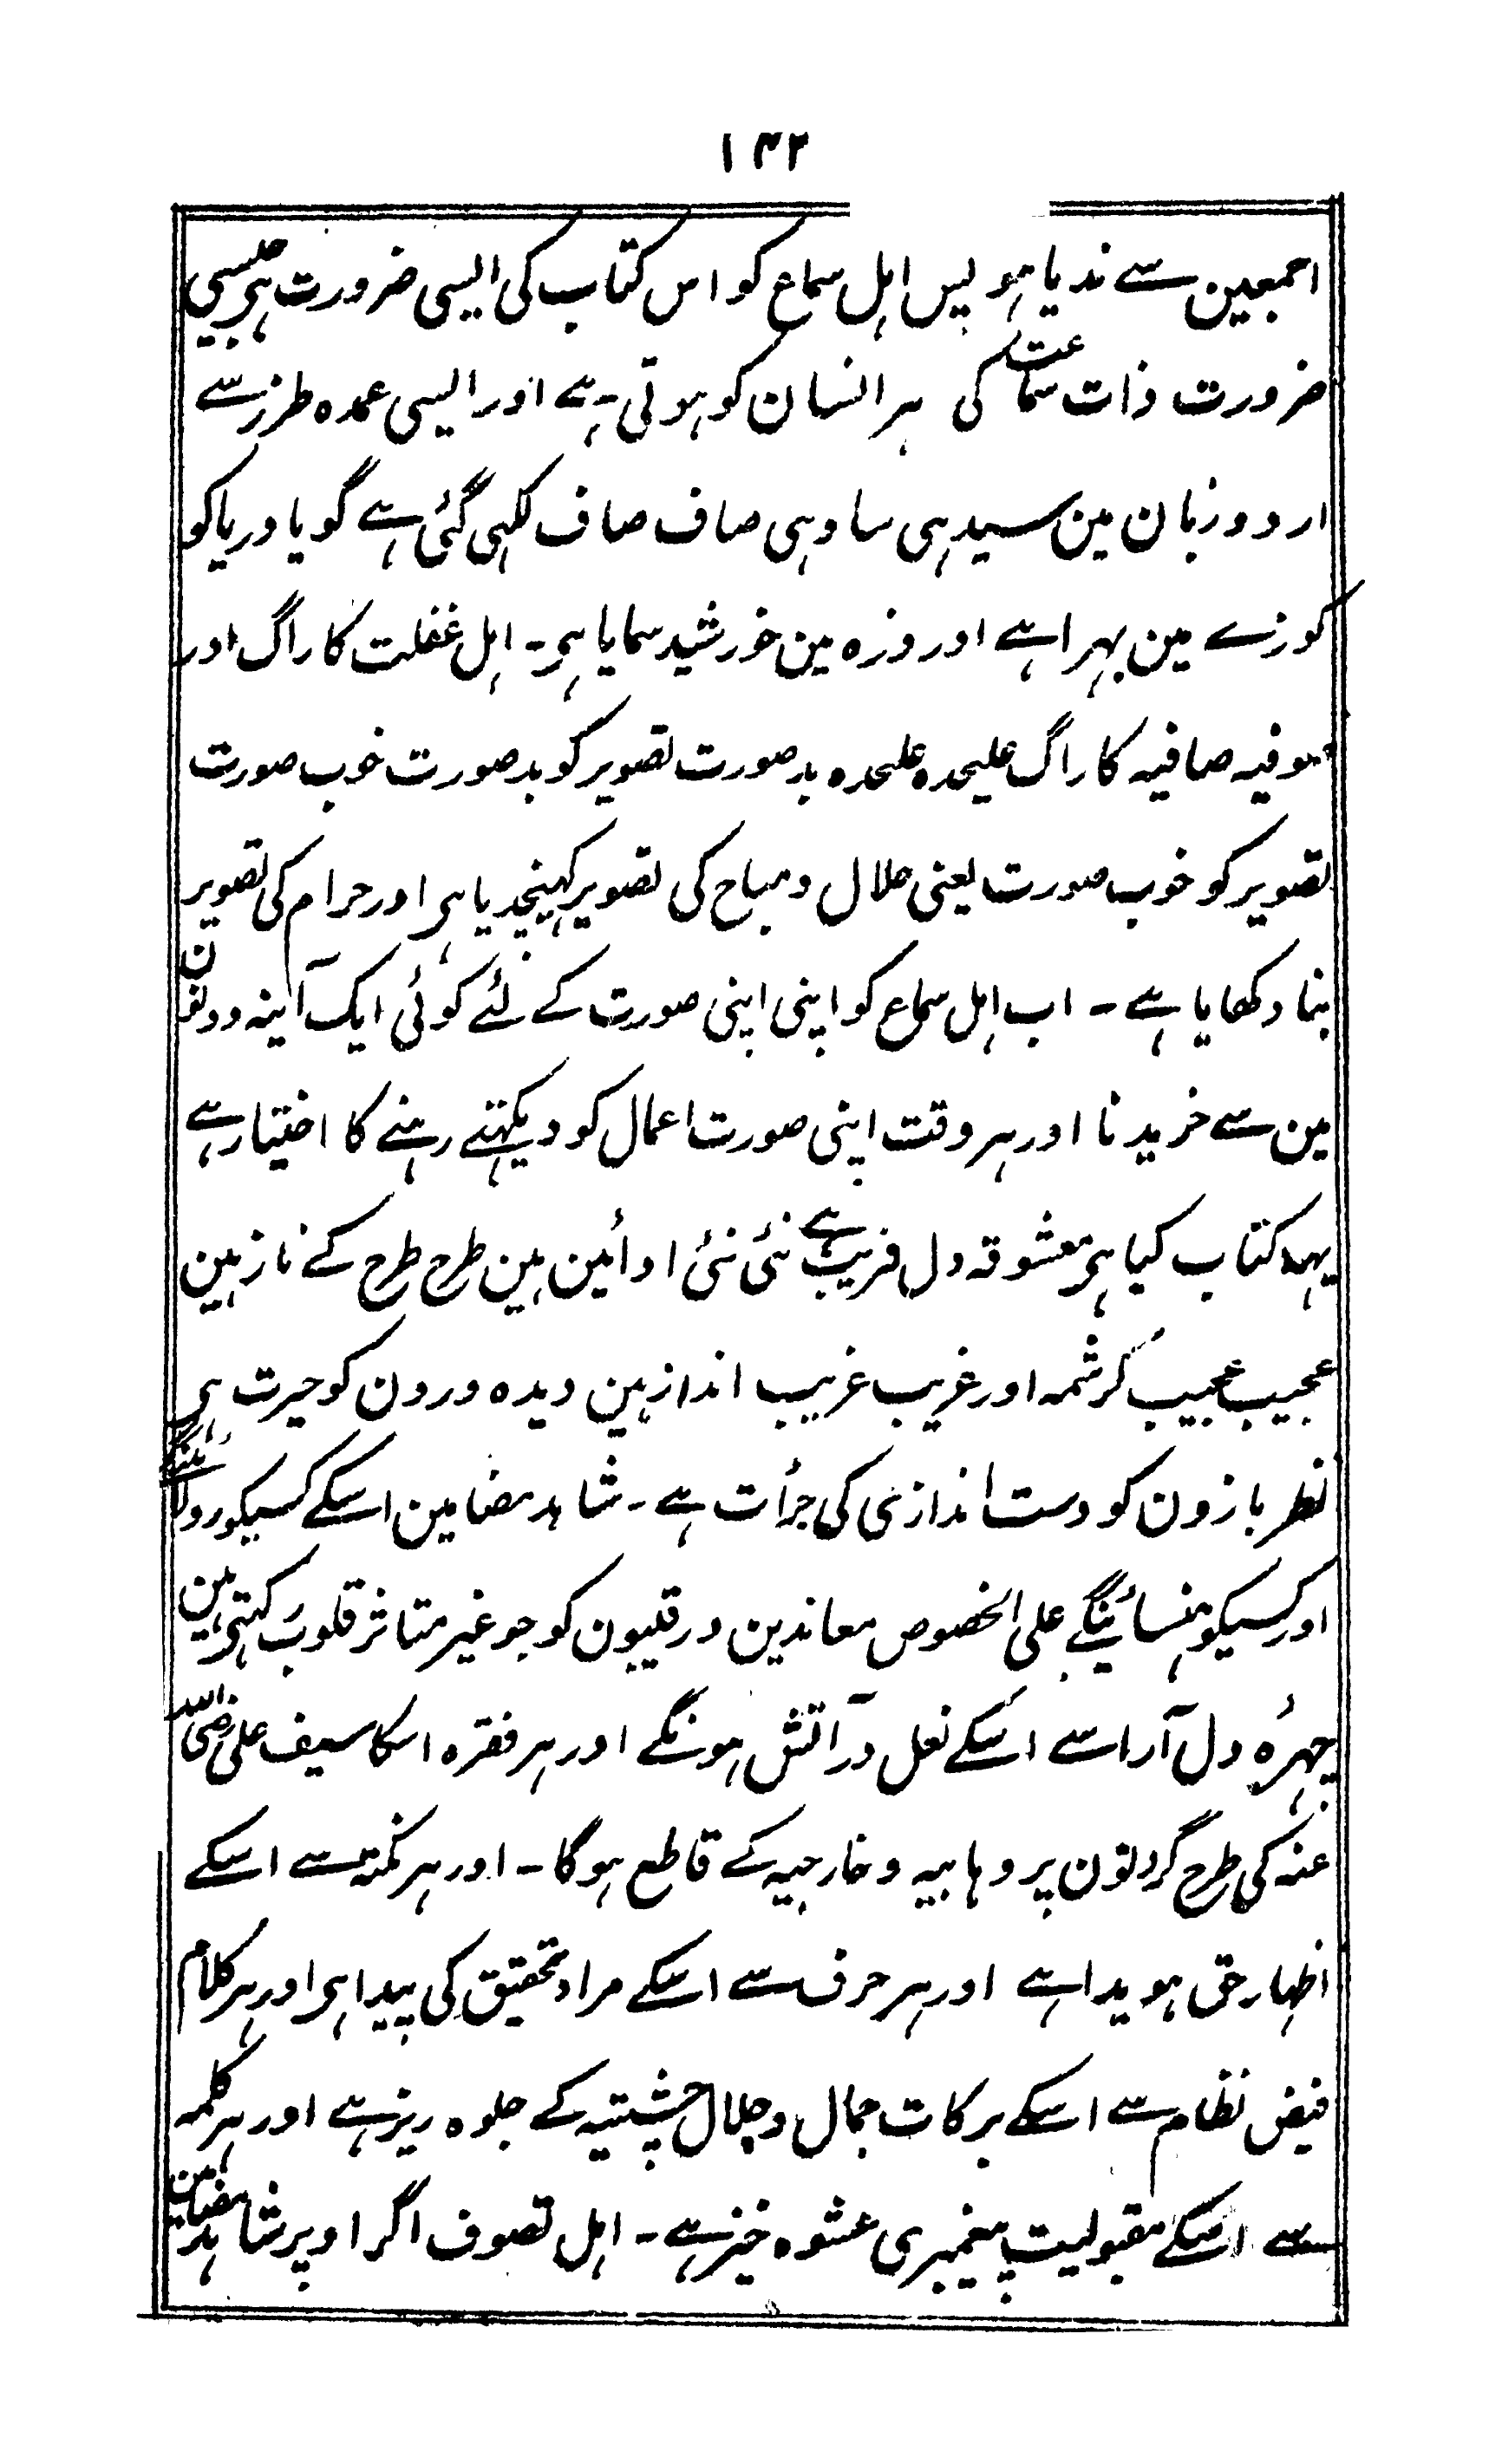 ۱۴۲
اجمعین سے ندیا ہو پس اہل سماع کو اس کتاب کی ایسی ضرورت ہی جیسی
ضرورت ذات سماعت کی ہر انسان کو ہوتی ہے اور ایسی عمدہ طرز سے
اردو زبان مین سیدہی سادہی صاف صاف لکہی گئی ہے گویا دریا کو
کوزے مین بہرا ہے اور ذرہ مین خورشید سمایا ہی۔ اہل غفلت کا راگ اور
صوفیہ صافیہ کا راگ علیحدہ علیحدہ بدصورت تصویر کو بدصورت خوب صورت
تصویر کو خوب صورت یعنی حلال و مباح کی تصویر کہینچدیا ہی اور حرام کی تصویر
بنا دکھایا ہے۔ اب اہل سماع کو اپنی اپنی صورت کے لئے کوئی ایک آئینہ دونون
مین سے خریدنا اور ہر وقت اپنی صورت اعمال کو دیکہتے رہنے کا اختیار ہے
یہہ کتاب کیا ہی معشوقہ دل فریب ہے نئی نئی ادائین ہین طرح طرح کے ناز ہین
عجیب عجیب کرشمہ اور غریب غریب انداز ہین دیدہ ورون کو حیرت ہی
نظر بازون کو دست اندازی کی جرأت ہے۔ شاہد مضامین اسکے کسیکو رولائینگے
اور کسیکو ہنسائینگے علی الخصوص معاندین و رقیبون کو جو غیر متاثر قلوب رکہتی ہین
چہرۂ دل آرا سے اسکے نعل در آتش ہونگے اور ہر فقرہ اسکا سیف علی رضی اللہ
عنہ کی طرح گردنون پر وہابیہ و خارجیہ کے قاطع ہوگا۔ اور ہر نکتہ سے اسکے
اظہار حق ہویدا ہے اور ہر حرف سے اسکے مراد تحقیق کی پیدا ہی اور ہر کلام
فیض نظام سے اسکے برکات جمال و جلال چشتیہ کے جلوہ ریز ہے اور ہر کلمہ
سے اسکے مقبولیت پیغمبری عشوہ خیز ہے۔ اہل تصوف اگر اوپر شاہد مضامین